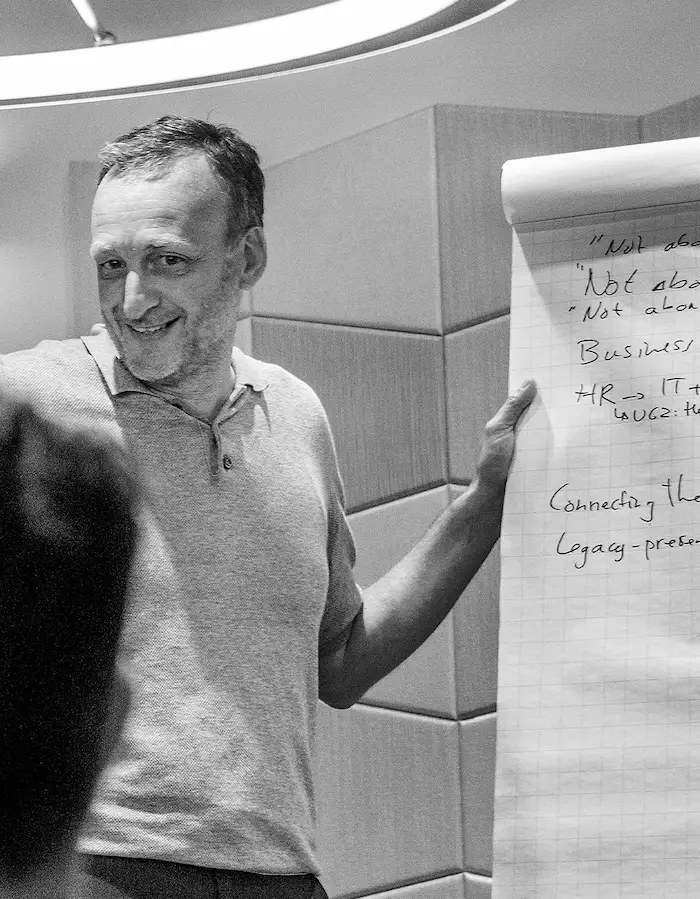 "Not abo
"Not abo
"Not abon
Business
HR → IT +
↳UG2: the
Connecting the
Legacy-prese